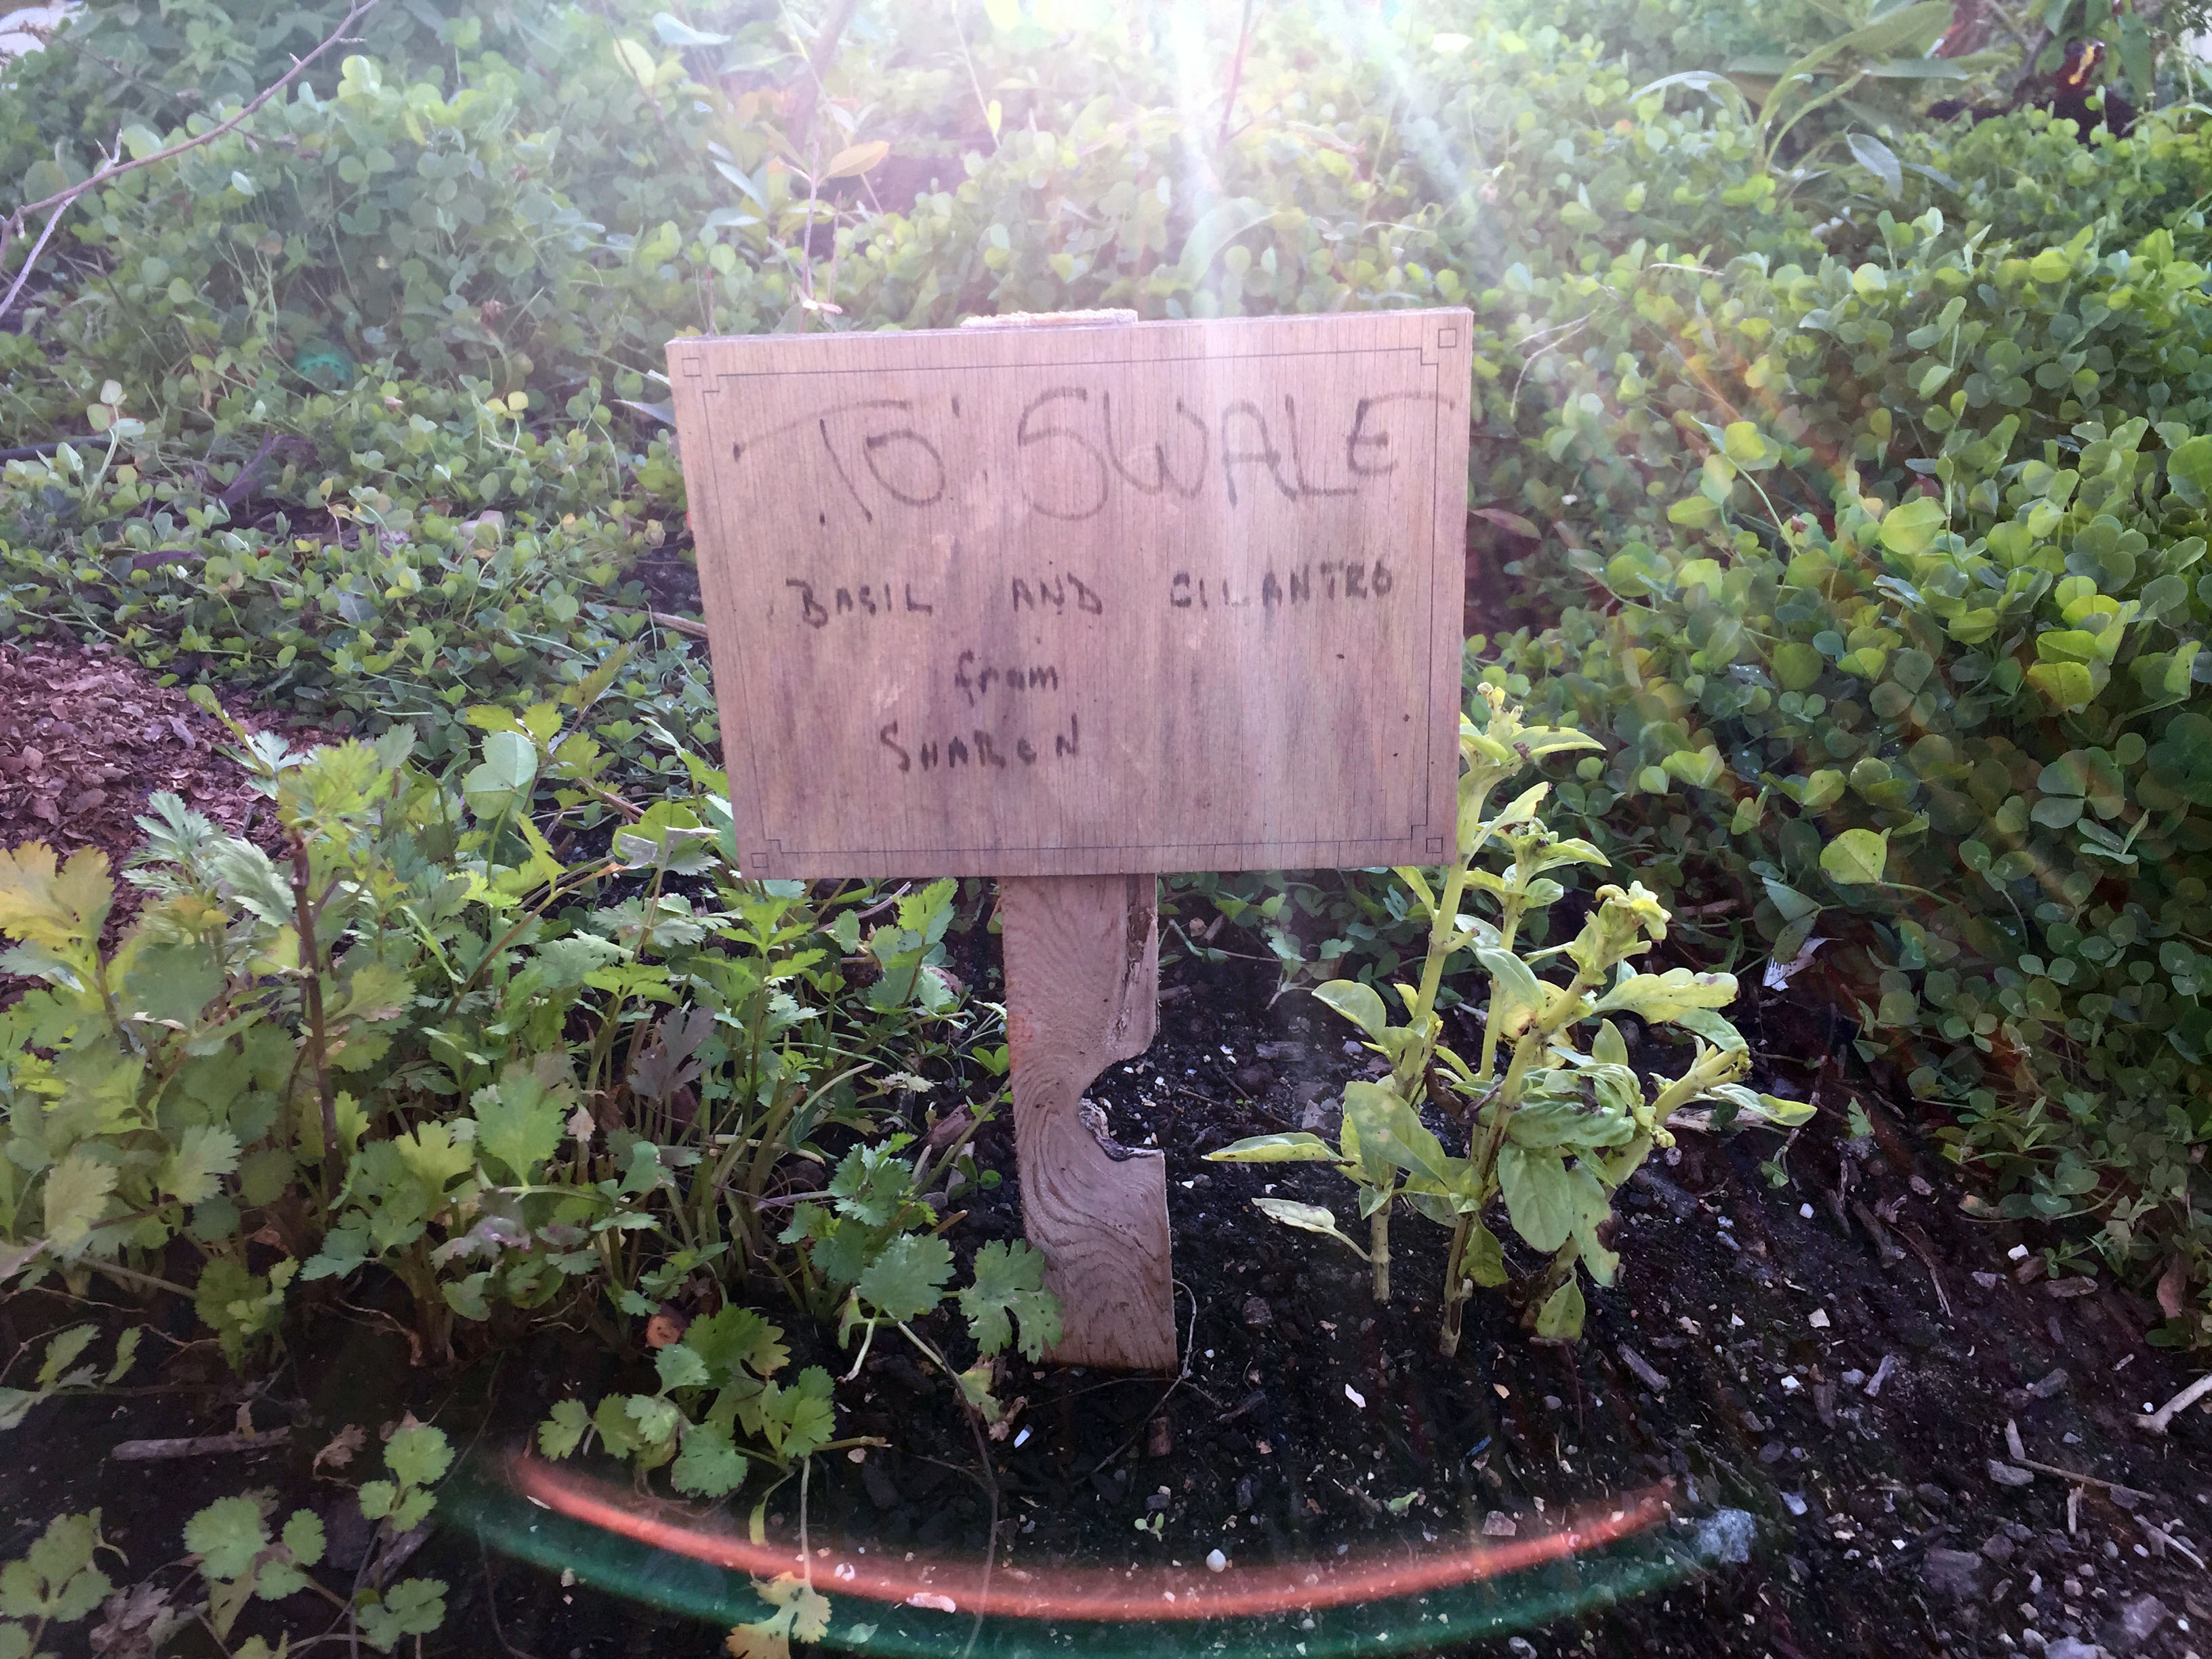 TO' SWALE
BASIL AND CILANTRO
from
SHARON